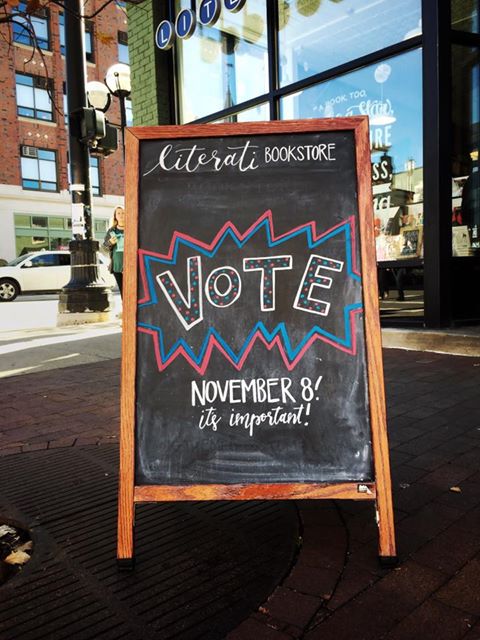 LITE
A BOOK, TOO,
literati BOOKSTORE
VOTE
NOVEMBER 8!
its important!